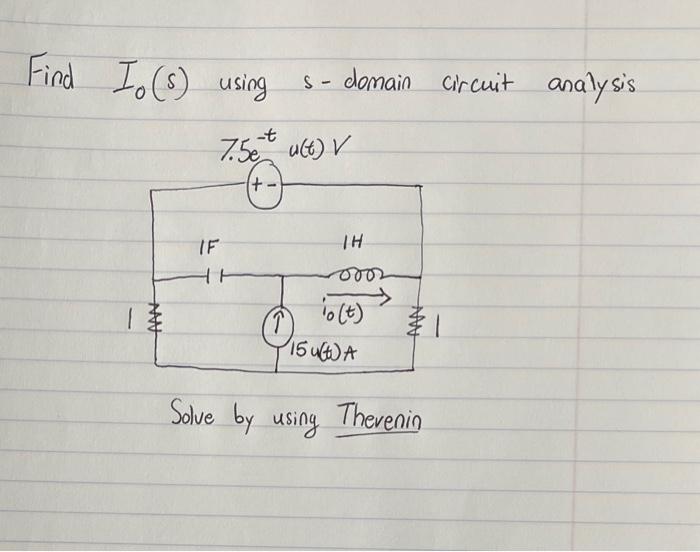 Find I₀(s) using s-domain circuit analysis
7.5e⁻ᵗ u(t) V
+ -
1F 1H
i₀(t)
1 1
15 u(t) A
Solve by using Thevenin